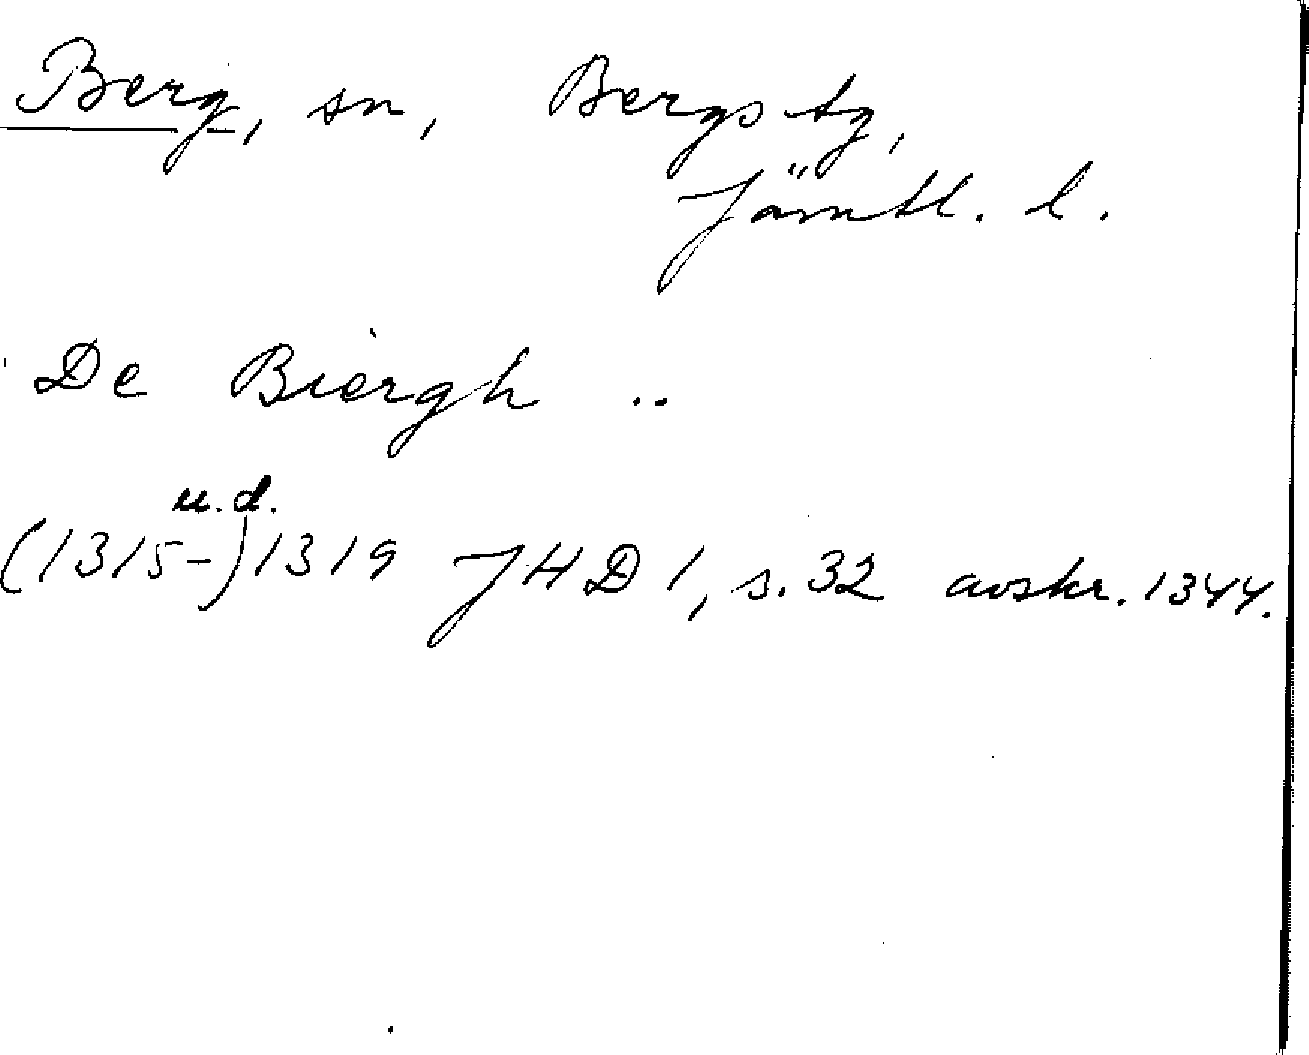 Berg, sn, Bergs tg,
Jämtl. l.
De Biergh ..
u.d.
(1315-)1319 JHD 1, s. 32 avskr. 1344.